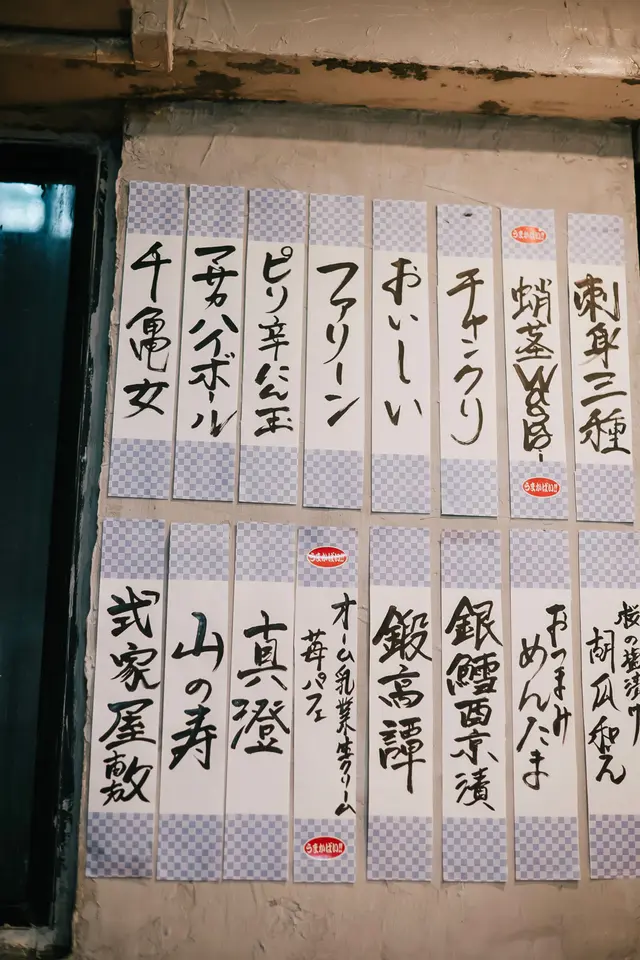 刺身三種
うまかばい!!
蛸茎わさび
うまかばい!!
チャンクリ
おいしい
ファリーン
ピリ辛にん玉
マサカハイボール
千亀女
桜の塩漬け
胡瓜和え
おつまみ
めんたま
銀鱈西京漬
鍛高譚
うまかばい!!
オーム乳業生クリーム
苺パフェ
うまかばい!!
真澄
山の寿
弐家屋敷